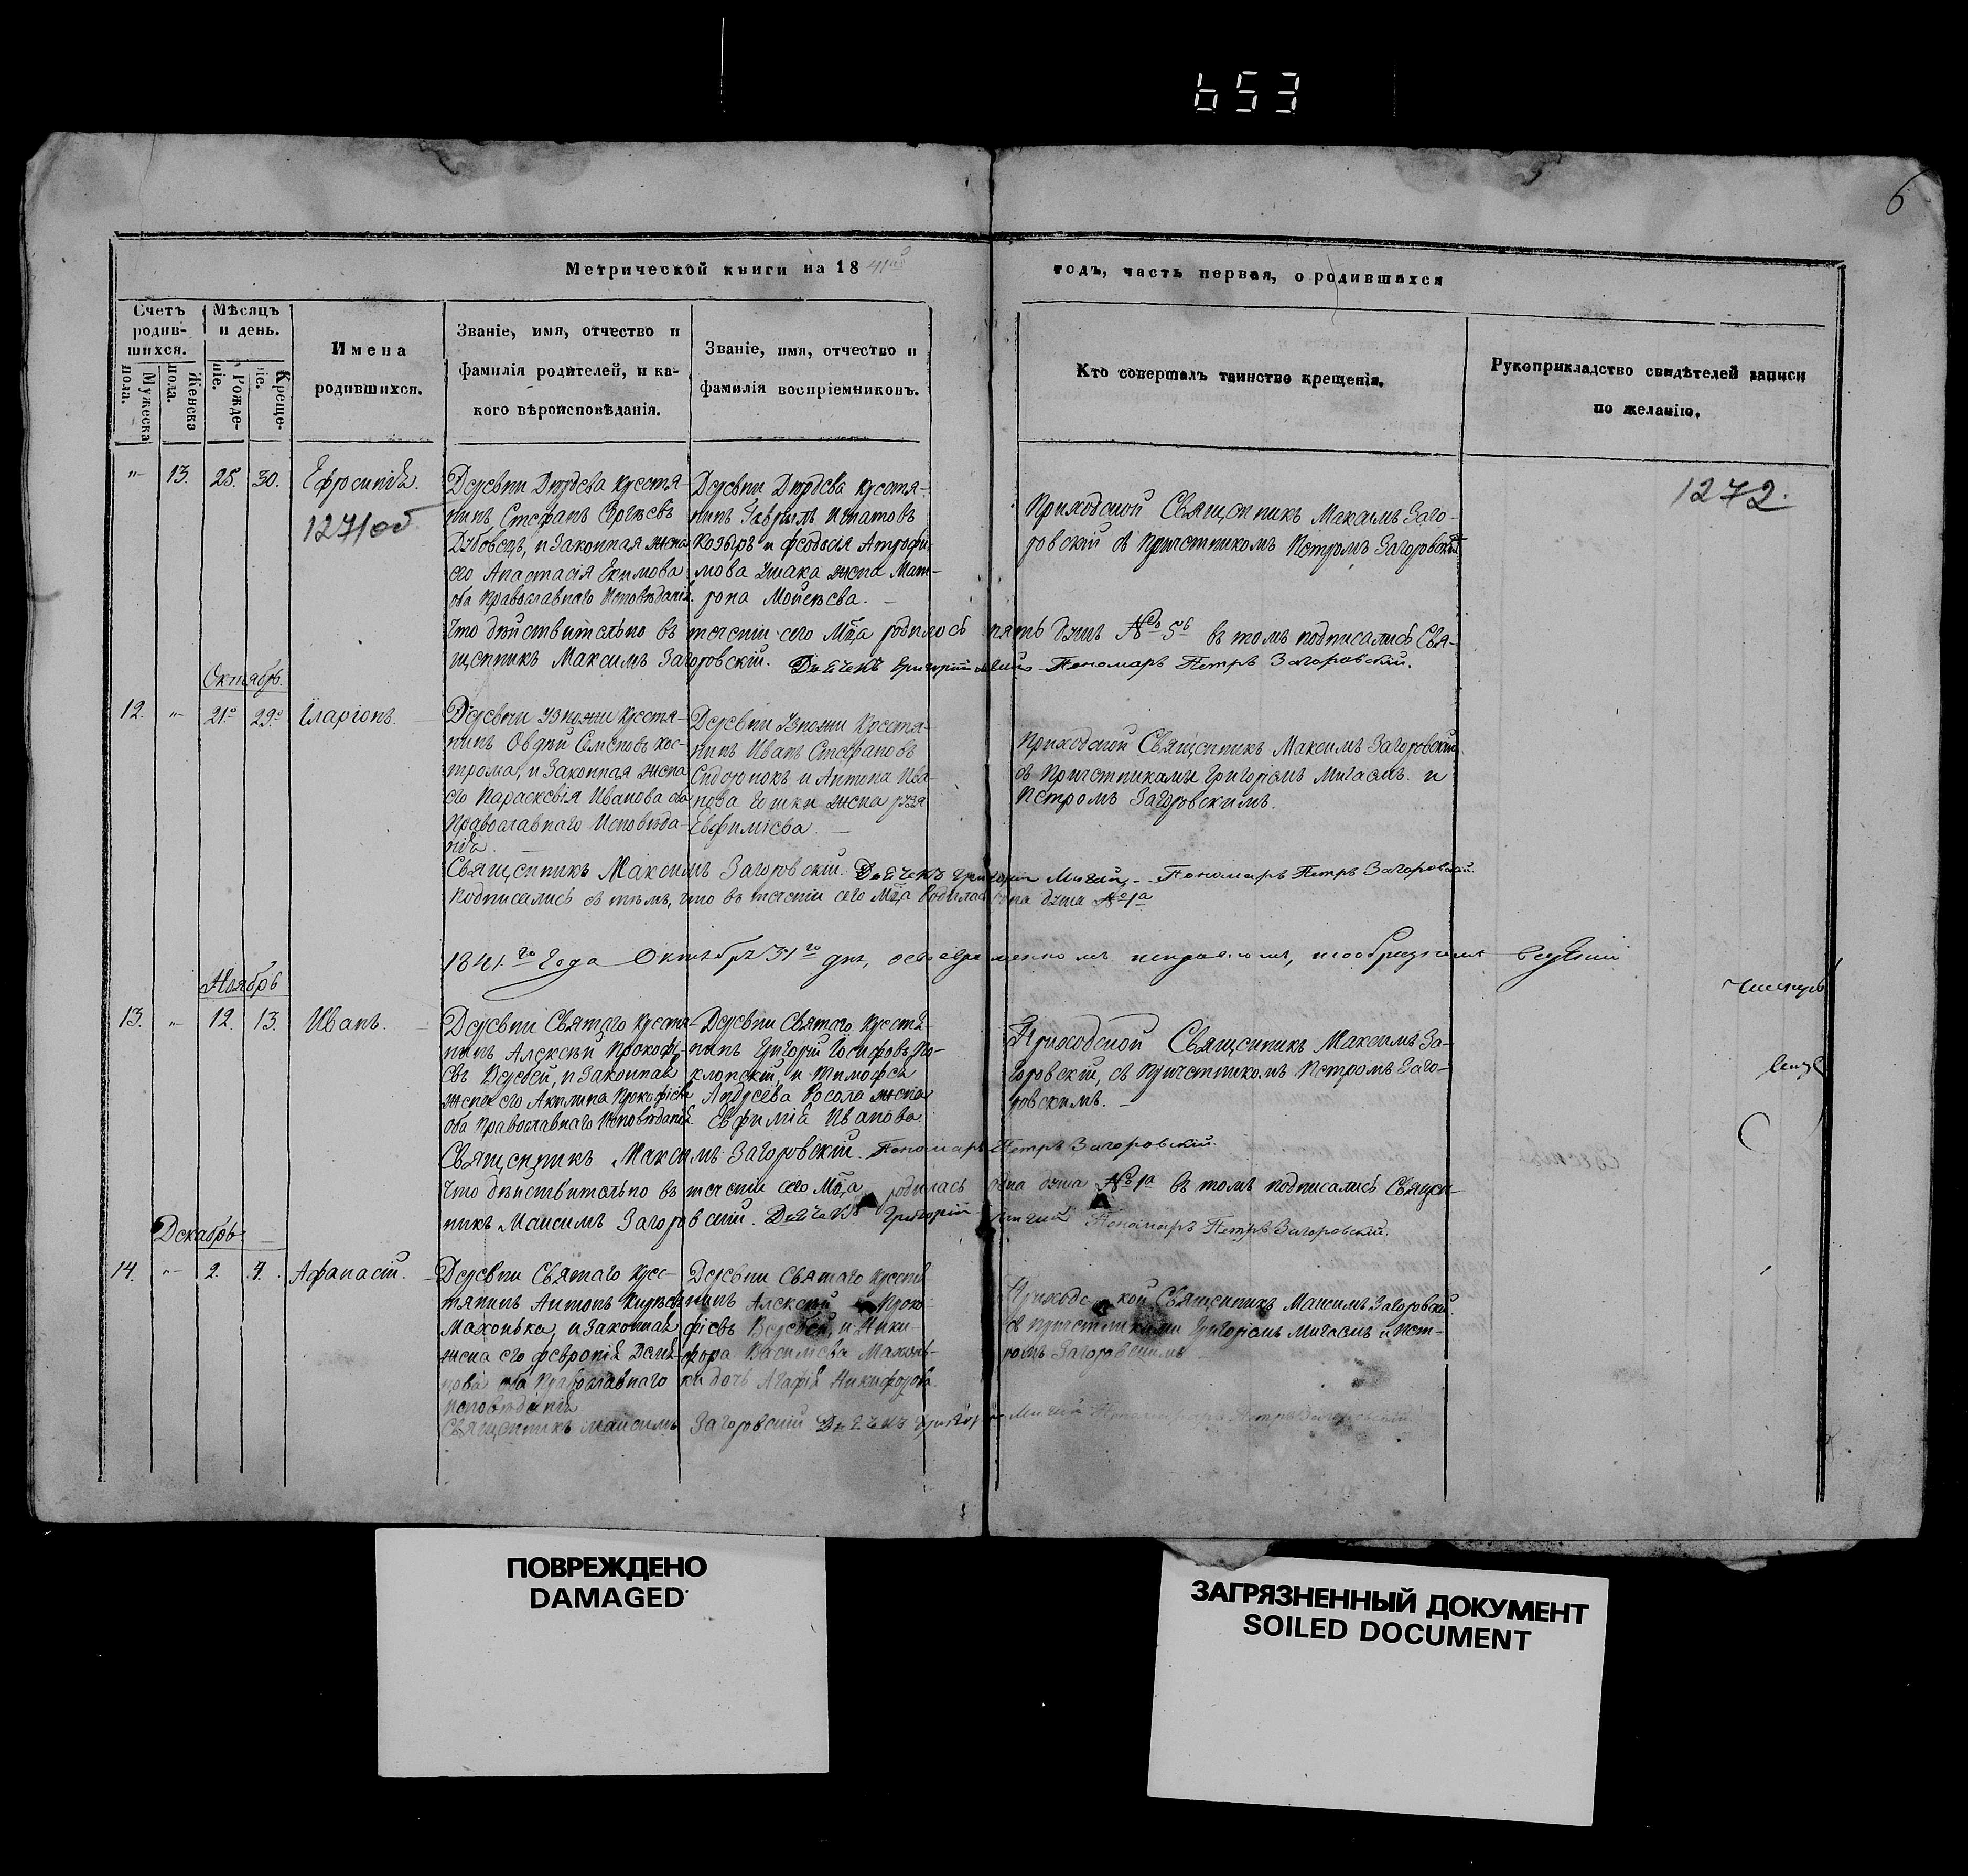 653
6
Метрической книги на 18 41го
годъ, часть первая, о родившихся
Счетъ родив-шихся.
Мужеска пола.
Женска пола.
Мѣсяцъ и день.
Рожде-ніе.
Креще-ніе.
Имена
родившихся.
Званіе, имя, отчество и
фамилія родителей, и ка-
кого вѣроисповѣданія.
Званіе, имя, отчество и
фамилія воспріемниковъ.
Кто совершалъ таинство крещенія.
Рукоприкладство свидѣтелей записи
по желанію.
1272.
"
13.
25.
30.
Ефросинія.
1271об
Деревни Дюрдева крестя-
нинъ Стефанъ Сергѣевъ
Дубовецъ, и Законная жена
его Анастасія Екимова
оба Православнаго Исповѣданія.
Деревни Дюрдева крестя-
нинъ Гаврылъ Игнатовъ
Козыръ и Феодосія Атрофи-
мова Ушака жена Мат-
рона Мойсеева.
Приходской Священникъ Максимъ Заго-
ровскій съ Причетникомъ Петромъ Загоровскимъ
Что дѣйствительно въ теченіи сего Мца родилось пять душъ № 5 въ томъ подписались Свя-
щенникъ Максимъ Загоровскій. Дьячекъ Григорій Мигай Пономаръ Петръ Загоровскій.
Октябръ.
12.
"
21.
29.
Иларіонъ.
Деревни Узножи Крестя-
нинъ Овдѣй Семеновъ Кос-
трома, и Законная жена
его Параскевія Иванова оба
Православнаго Исповѣда-
нія.
Деревни Узножи Крестя-
нинъ Иванъ Стефановъ
Сидоронокъ и Антона Ива-
нова жена
Евфиміева.
Приходской Священникъ Максимъ Загоровскій
съ Причетниками Григоріемъ Мигаемъ и
Петромъ Загоровскимъ.
Священникъ Максимъ Загоровскій. Дьячекъ Григорій Мигай, Пономаръ Петръ Загоровскій.
Подписались съ тѣмъ, что въ теченіи сего Мца Родилась една душа № 1а
1841го Года Октября 31го дня,
Ноябръ
13.
"
12.
13.
Иванъ.
Деревни Святаго Крестя-
нинъ Алексѣй Прокофі-
евъ Веребей, и Законная
жена его Акилина Прокофіева
оба Православнаго Исповѣданія.
Деревни Святаго Крестя-
нинъ Григорій Іосифовъ По-
клонскій, и Тимофея
Андреева Росола жена
Евфимія Иванова.
Приходской Священникъ Максимъ За-
горовскій, съ Причетникомъ Петромъ Заго-
ровскимъ.
Священникъ Максимъ Загоровскій. Пономаръ Петръ Загоровскій.
Что дѣйствительно въ теченіи сего Мца родилась една душа № 1а въ томъ подписались Священ-
никъ Максимъ Загоровскій. Дьячекъ Григорій Мигай Пономаръ Петръ Загоровскій.
Декабрь
14.
"
2.
4.
Афанасій.
Деревни Святаго Крес-
тянинъ Антонъ
Махонька, и Законная
жена его Февронія
оба Православнаго
Исповѣданія
Деревни Святаго Крестя
нинъ Алексѣй Проко-
фіевъ Веребей, и Ники-
фора Василіева Махонь-
ки дочь Агафія Никифорова
Приходской Священникъ Максимъ Загоровскій.
съ Причетниками Григоріемъ Мигаемъ и Пет-
ромъ Загоровскимъ
Священникъ Максимъ Загоровскій Дьячекъ Григорій Мигай Пономаръ Петръ Загоровскій.
ПОВРЕЖДЕНО
DAMAGED
ЗАГРЯЗНЕННЫЙ ДОКУМЕНТ
SOILED DOCUMENT